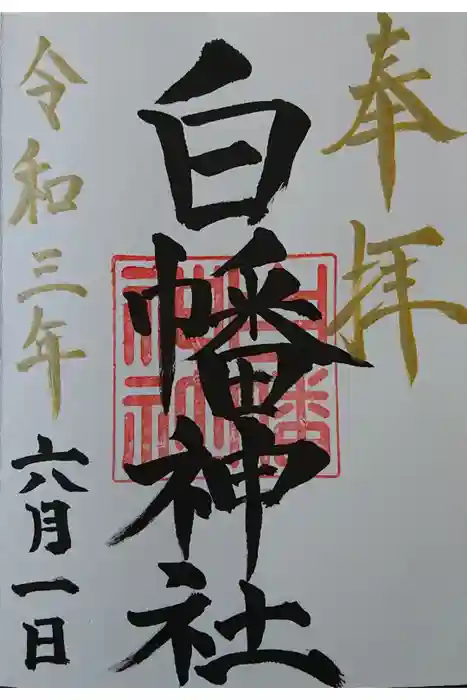 奉拝
白幡神社
白幡神社
令和三年六月一日